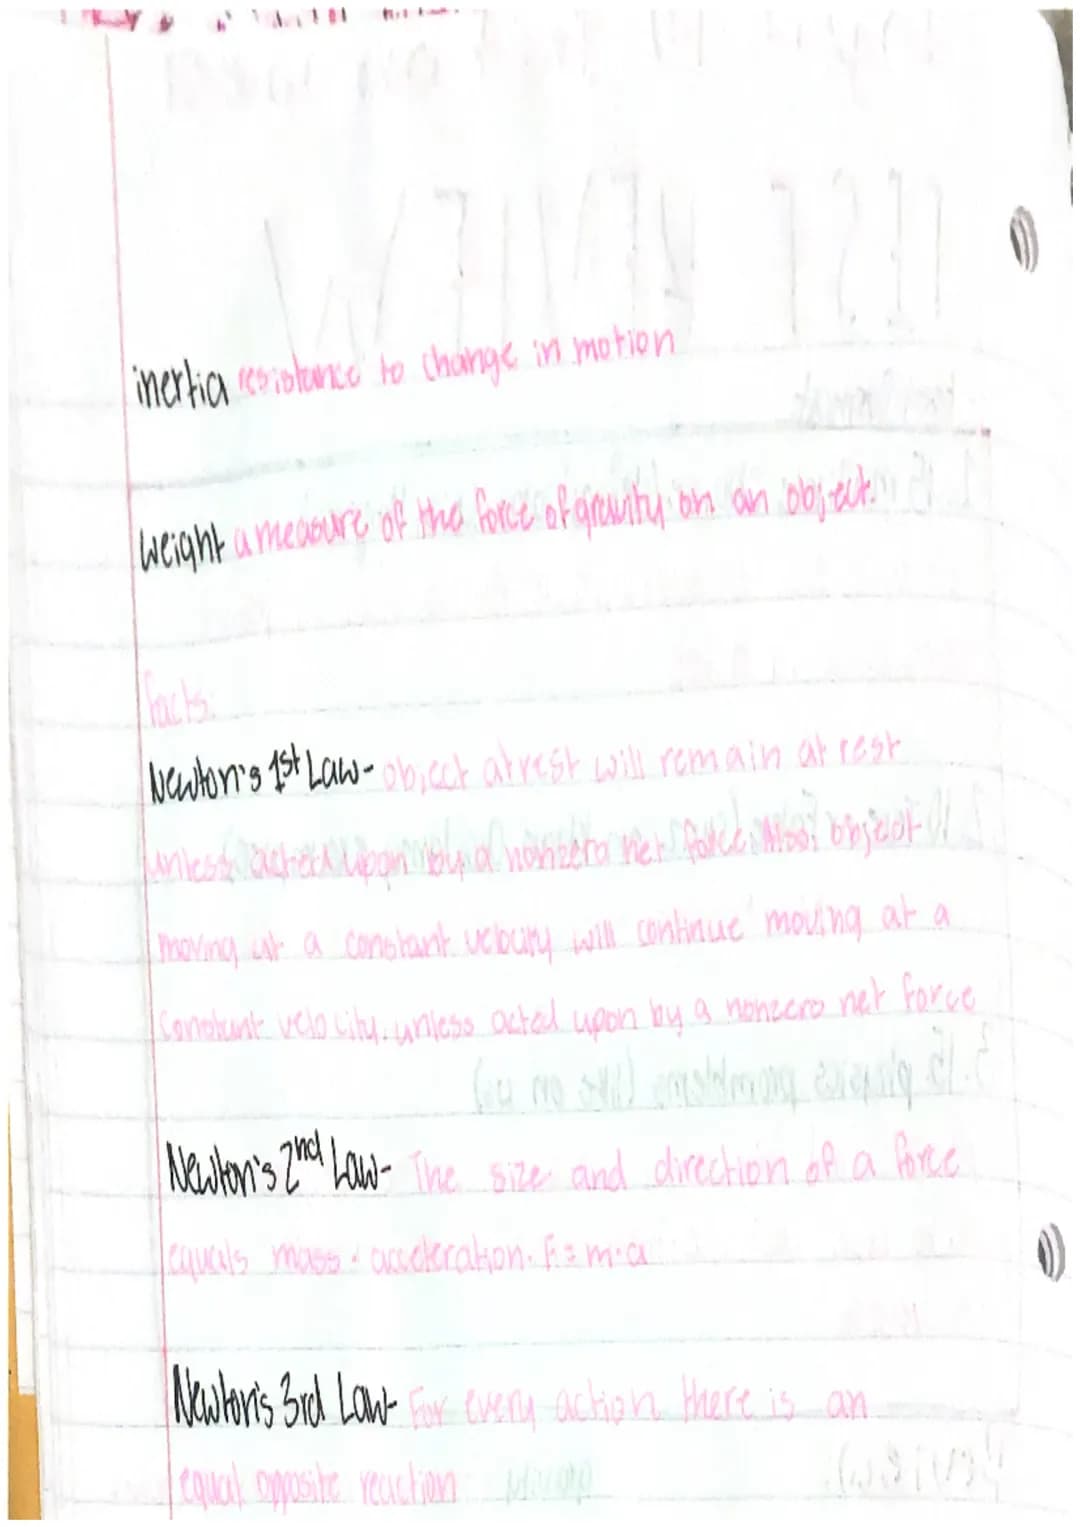 inertia resistance to change in motion
weight a measure of the force of gravity on an object.
facts:
Newton's 1st Law- object at rest will remain at rest
unless acted upon by a nonzero net force. Also, object
moving at a constant velocity will continue moving at a
constant velocity, unless acted upon by a nonzero net force
Newton's 2nd Law- The size and direction of a force
equals mass · acceleration. F = m·a
Newton's 3rd Law- For every action there is an
equal opposite reaction